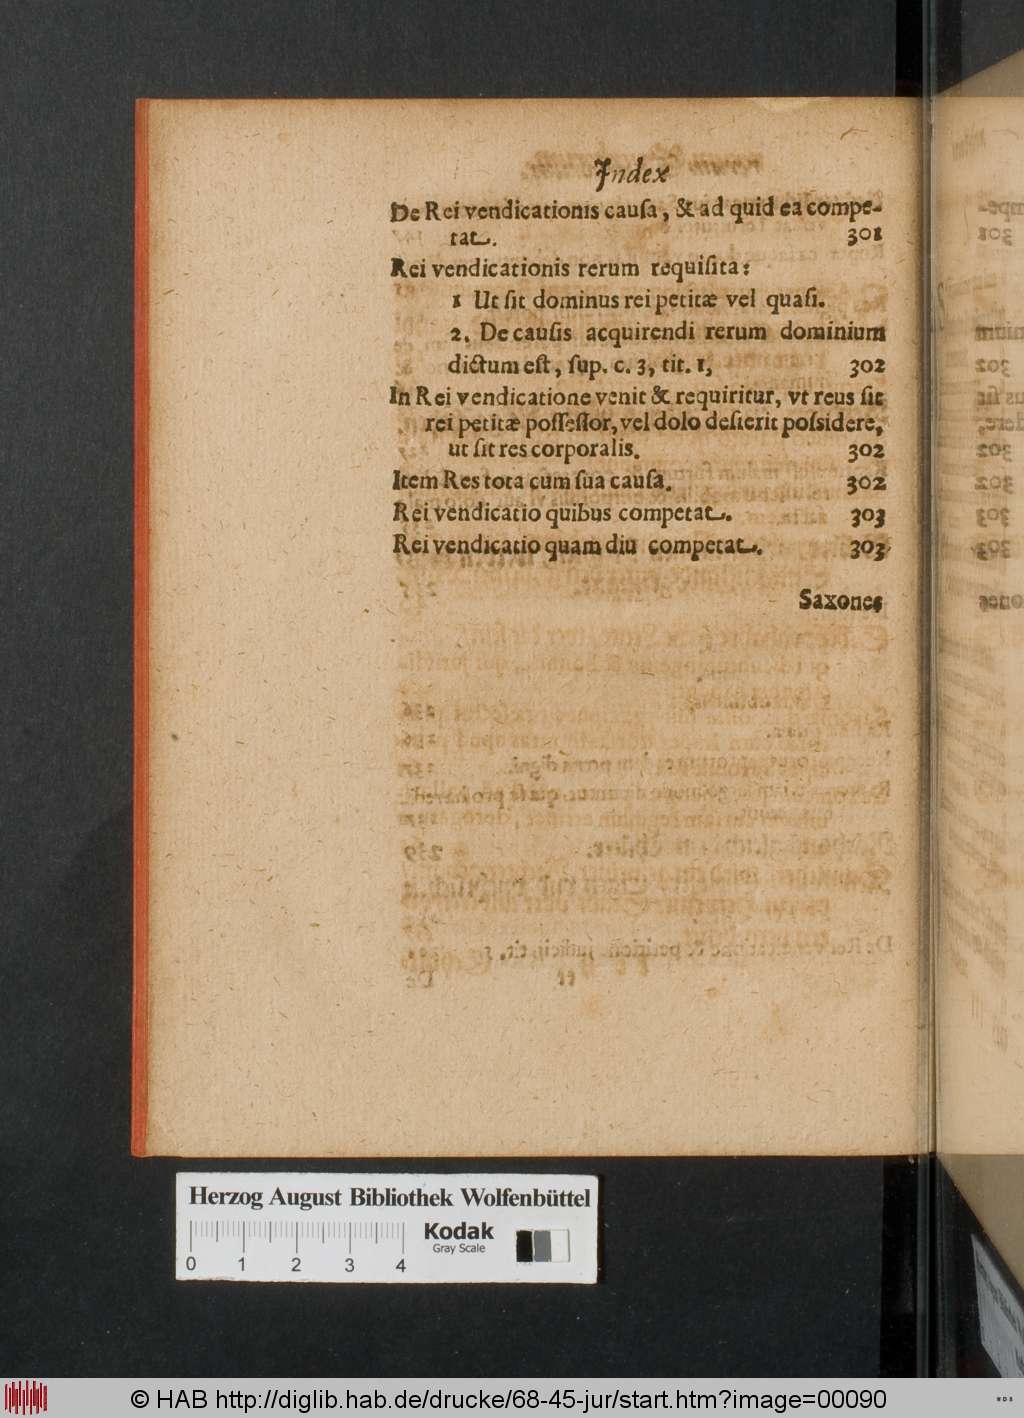 Index
De Rei vendicationis cauſa, & ad quid ea compe-
tat. 301
Rei vendicationis rerum requiſita:
1 Ut ſit dominus rei petitæ vel quaſi.
2. De cauſis acquirendi rerum dominium
dictum eſt, ſup. c. 3, tit. 1, 302
In Rei vendicatione venit & requiritur, vt reus ſit
rei petitæ poſſeſſor, vel dolo deſierit poſsidere,
ut ſit res corporalis. 302
Item Res tota cum ſua cauſa. 302
Rei vendicatio quibus competat. 303
Rei vendicatio quam diu competat. 303
Saxones
Herzog August Bibliothek Wolfenbüttel
Kodak
Gray Scale
0 1 2 3 4
© HAB http://diglib.hab.de/drucke/68-45-jur/start.htm?image=00090